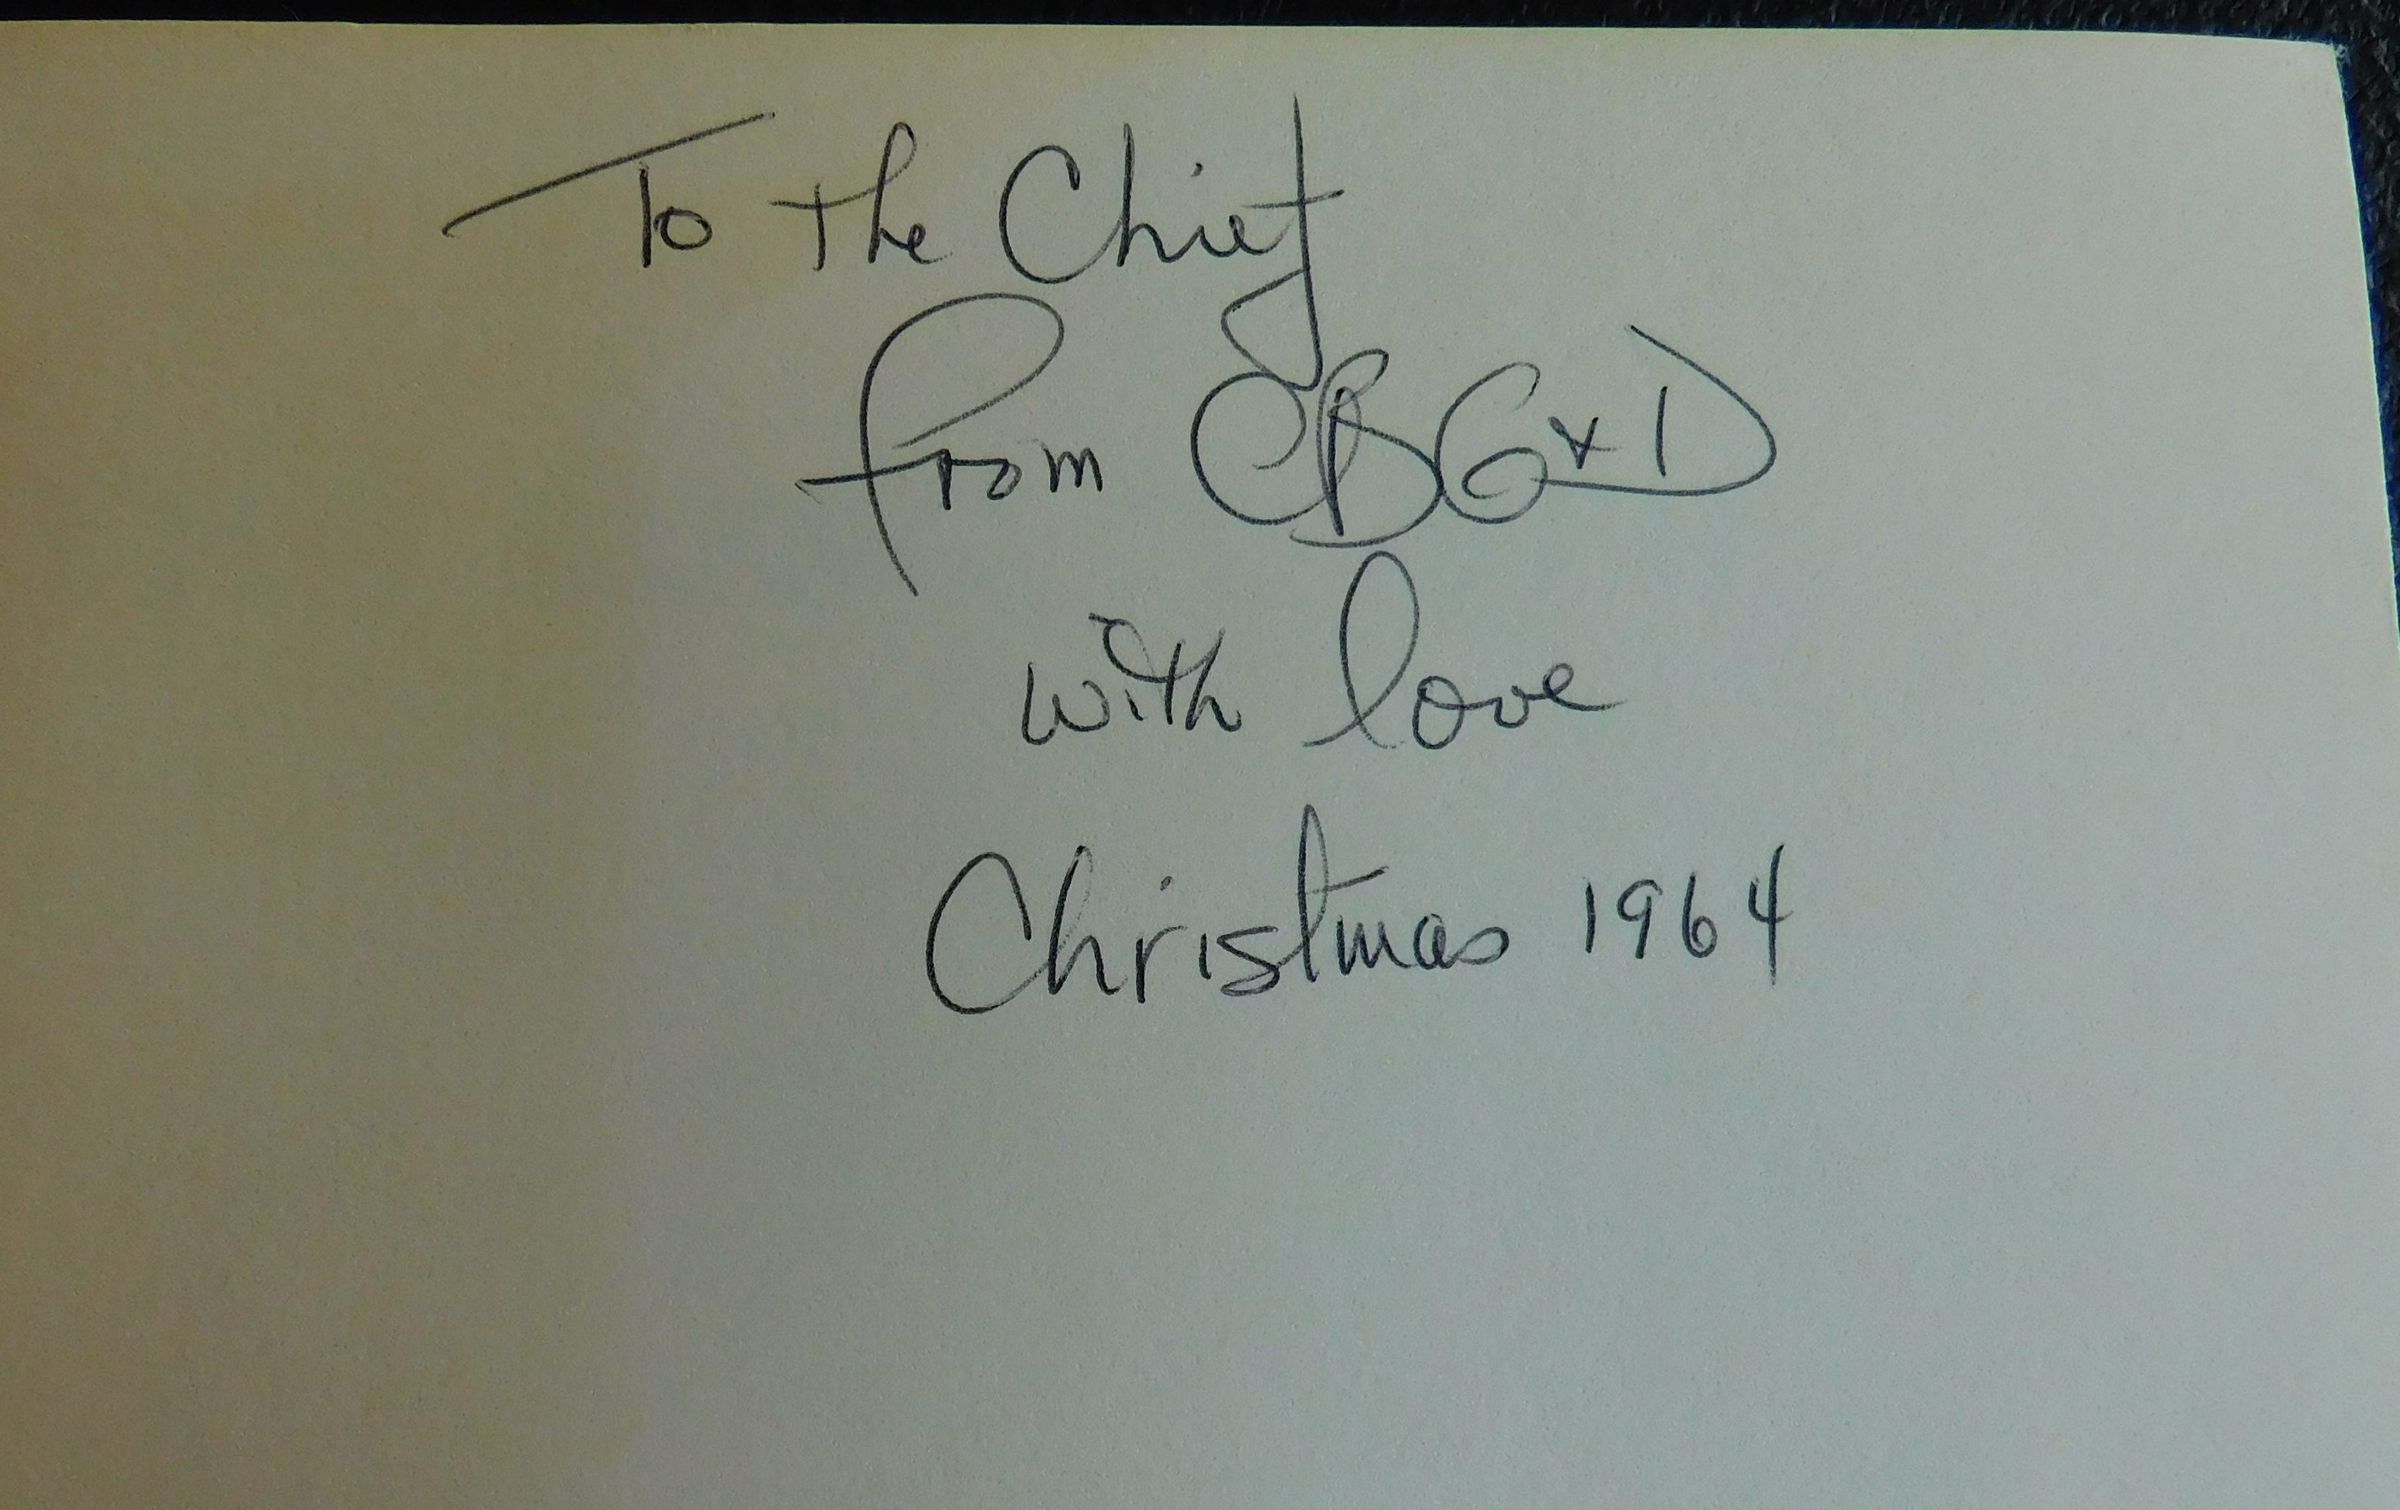 To the Chief
from CBG + D
with love
Christmas 1964